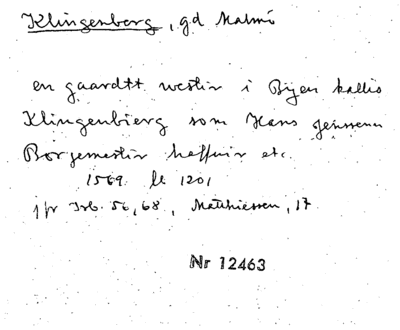 Klingenberg, gd Malmö
en gaardtt westir i Byen kallis
Klingenbierg som Hans Jenssenn
Borgemestir haffuir etc.
1569 lb 1201
jfr Jrb. 56, 68, Matthiessen, 17
Nr 12463